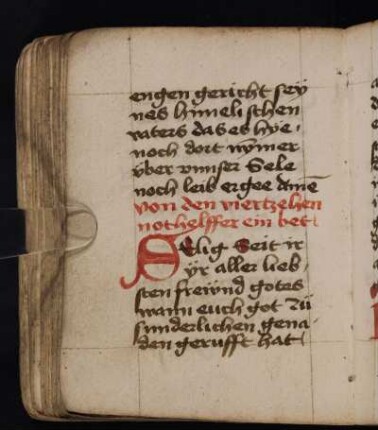 engen gericht seÿ
nes himelischen
vaters das es hÿe
noch dort nÿmer
vber vnnser Sele
noch leib ergee amē
von den viertzehen
nothelffer ein bet
Selig Seit ir
ÿr aller lieb
sten freünd gotes
wann euch got zů
sunderlichen gena
den gerufft hat